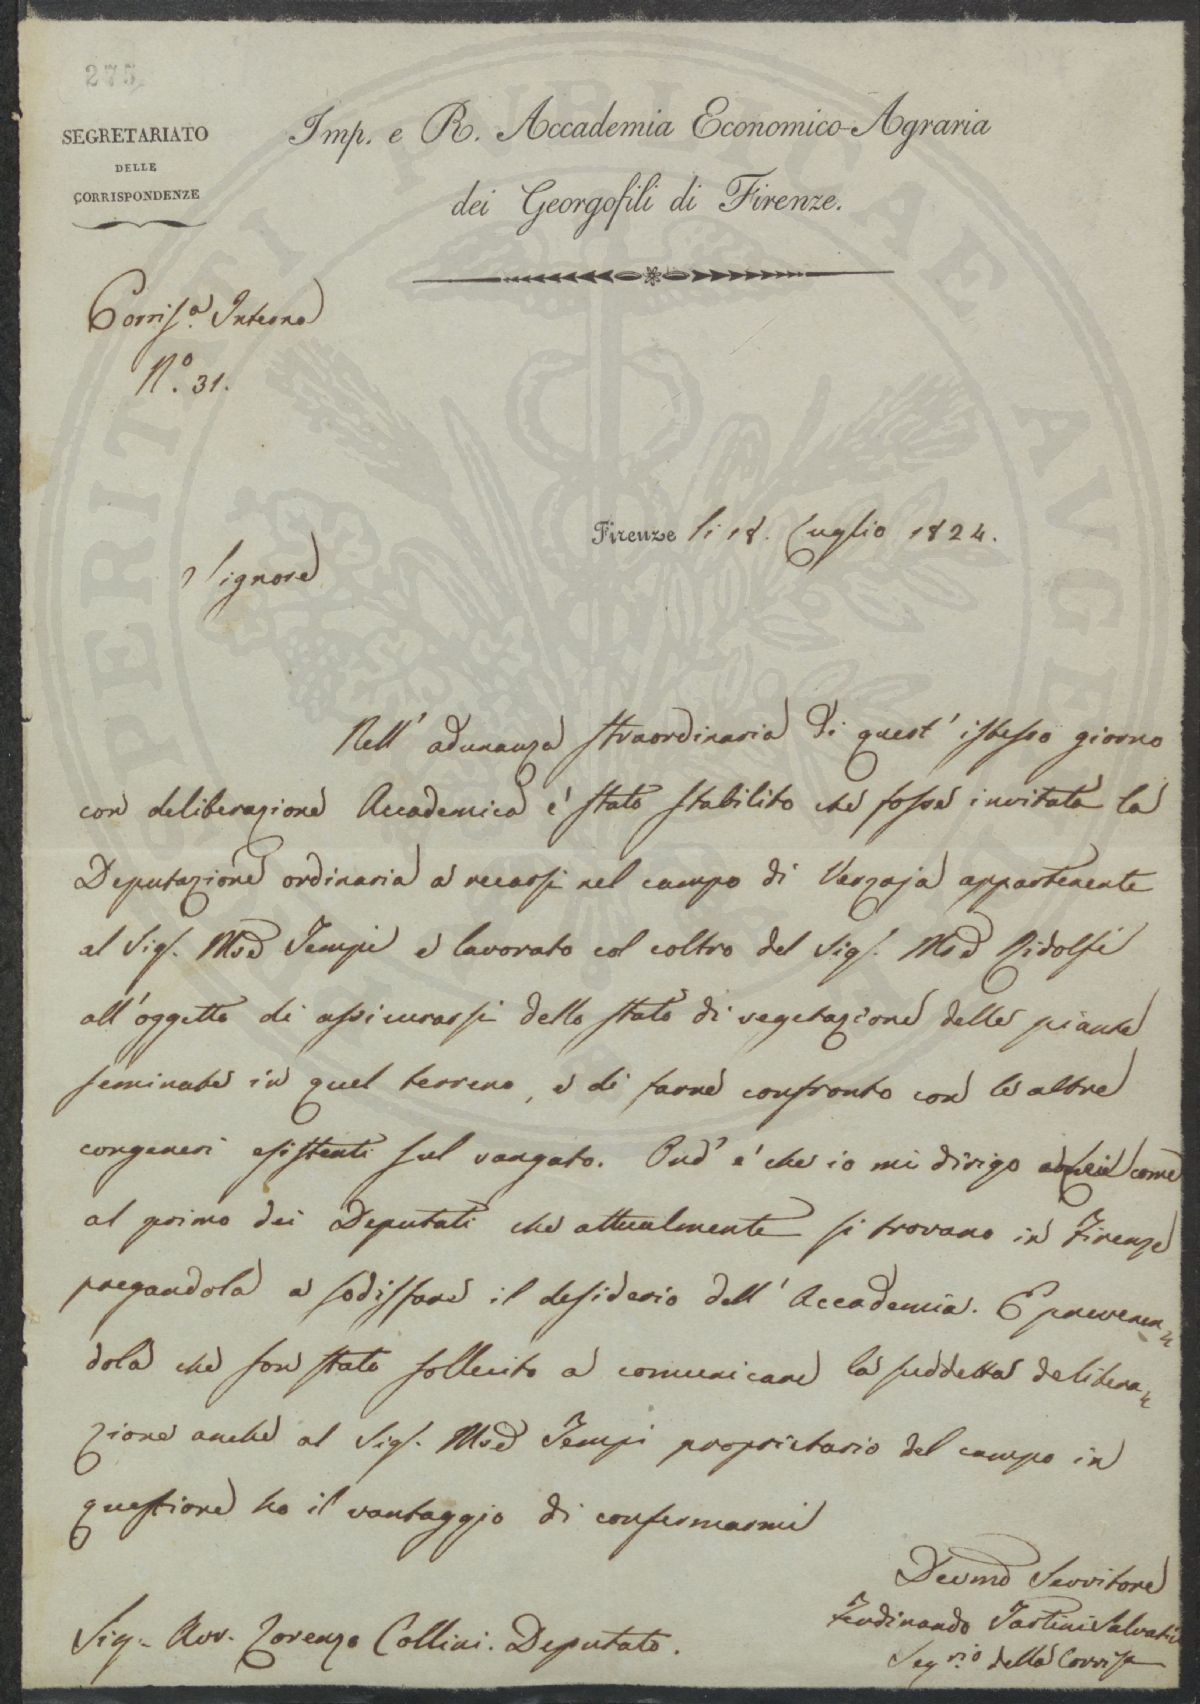 275
SEGRETARIATO
DELLE
CORRISPONDENZE
Imp. e R. Accademia Economico-Agraria
dei Georgofili di Firenze.
Corrisp.a Interna
N.o 31.
Firenze li 18. Luglio 1824.
Signore
Nell' adunanza straordinaria di quest' istesso giorno
con deliberazione Accademica e' stato stabilito che fosse invitata la
Deputazione ordinaria a recarsi nel campo di Verzaja appartenente
al Sig. Mse Tempi e lavorato col coltro del Sig. Mse Ridolfi
all' oggetto di assicurarsi dello stato di vegetazione delle piante
seminate in quel terreno, e di farne confronto con le altre
congeneri esistenti sul vangato. Ond' e' che io mi dirigo a Lei come
al primo dei Deputati che attualmente si trovano in Firenze
pregandola a sodisfare il desiderio dell' Accademia. E preveren=
dola che son stato sollecito a comunicare la suddetta delibera=
zione anche al Sig. Mse Tempi proprietario del campo in
questione ho il vantaggio di confermarmi
Devmo Servitore
Ferdinando Tartini Salvatici
Seg.rio della Corrispa
Sig. Avv. Lorenzo Collini. Deputato.